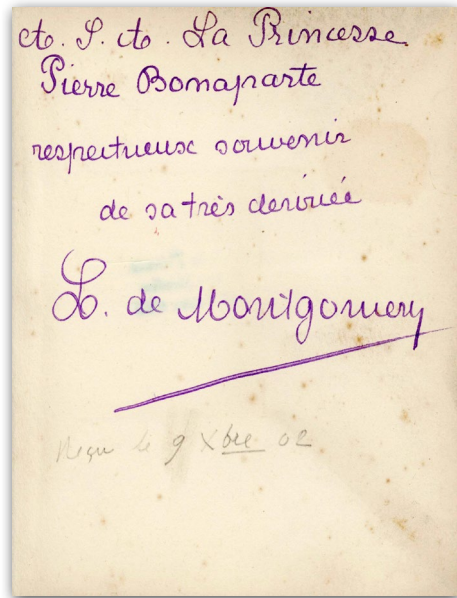 A. S. A. La Princesse
Pierre Bonaparte
respectueux souvenir
de sa très dévouée
L. de Montgomery
Reçu le 9 Xbre 02